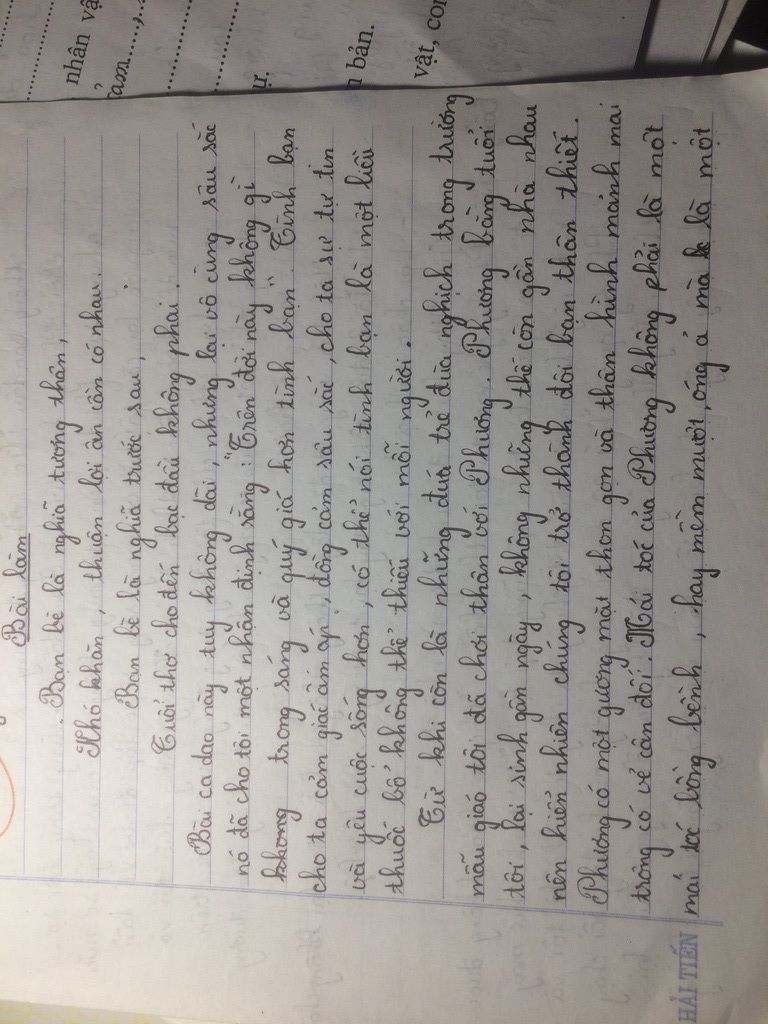 nhân vậ
am.....,
ự.
n bản.
vật, con
Bài làm
Bạn bè là nghĩa tương thân,
Khó khăn, thuận lợi ân cần có nhau.
Bạn bè là nghĩa trước sau,
Tuổi thơ cho đến bạc đầu không phai.
Bài ca dao này tuy không dài, nhưng lại vô cùng sâu sắc
nó đã cho tôi một nhận định rằng: "Trên đời này không gì
không trong sáng và quý giá hơn tình bạn". Tình bạn
cho ta cảm giác ấm áp, đồng cảm sâu sắc, cho ta sự tự tin
và yêu cuộc sống hơn, có thể nói tình bạn là một liều
thuốc bổ không thể thiếu với mỗi người.
Từ khi còn là những đứa trẻ đùa nghịch trong trường
mẫu giáo tôi đã chơi thân với Phương. Phương bằng tuổi
tôi, lại sinh gần ngày, không những thế còn gần nhà nhau
nên hiển nhiên chúng tôi trở thành đôi bạn thân thiết.
Phương có một gương mặt thon gọn và thân hình mảnh mai
trông có vẻ cân đối. Mái tóc của Phương không phải là một
mái tóc bồng bềnh, hay mềm mượt, óng ả mà là một
HẢI TIẾN